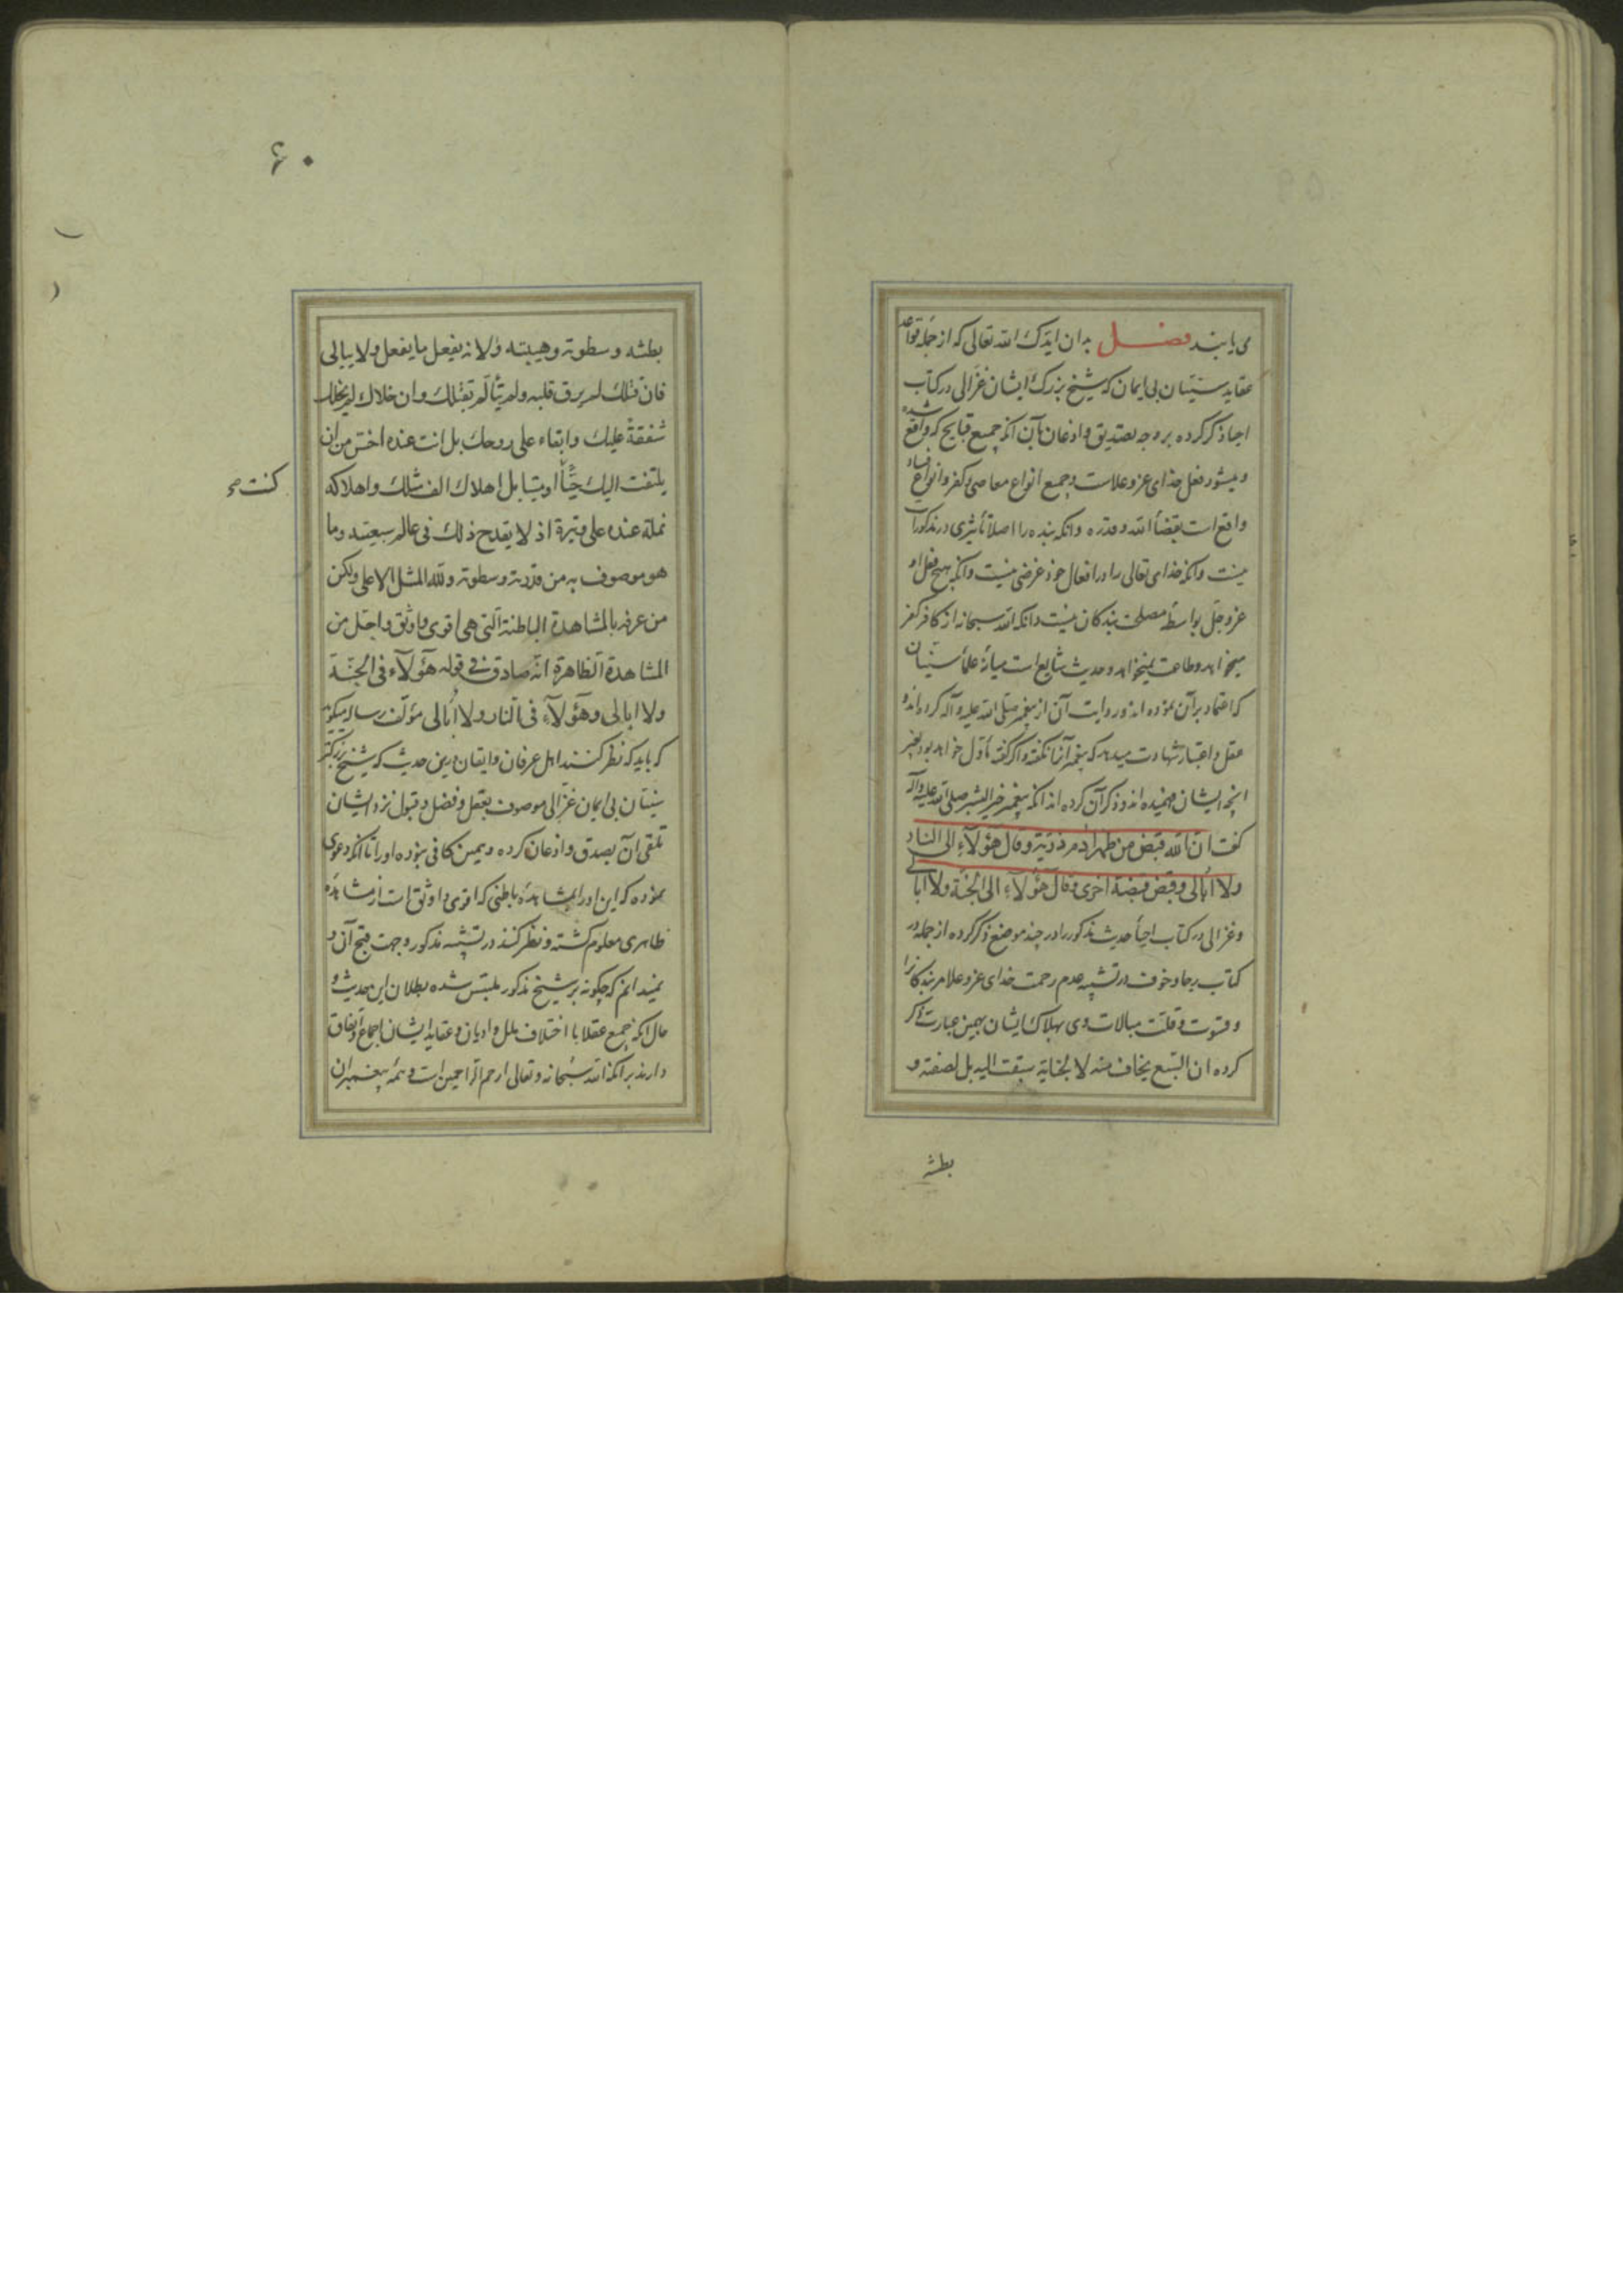 می یابند فصل بدان ایدک الله تعالی که از جمله قواعد
عقاید سنیان بی ایمان که شیخ بزرک ایشان غزالی در کتاب
احیا ذکر کرده بر وجه تصدیق و اذعان بآن آنکه جمیع قبایح که واقع شده
و میشود فعل خدای عز و علاست و جمیع انواع معاصی و کفر و انواع فساد
واقع است بقضأ الله و قدره و آنکه بنده را اصلا تأثیری در مذکورات
نیست و آنکه خدای تعالی را در افعال خود غرضی نیست و آنکه هیچ فعل او
عز و جل بواسطه مصلحت بندکان نیست و آنکه الله سبحانه از کافر کفر
میخواهد و طاعت نمیخواهد و حدیث شایع است میانهٔ علمأ سنیان
که اعتماد بر آن نموده اند و روایت آن از پیغمبر صلی الله علیه و آله کرده اند و
عقل و اعتبار شهادت میدهد که پیغمبر آنرا نکفته و اکر کفته مأول خواهد بود بغیر
آنچه ایشان فهمیده اند و ذکر آن کرده اند آنکه پیغمبر خیر البشر صلی الله علیه و آله
کفت ان الله قبض من ظهر آدم ذریة و قال هؤلآء الی النار
ولا أبالی و قبض قبضة اخری و قال هؤلآء الی الجنة ولا أبالی
و غزالی در کتاب احیأ حدیث مذکور را در چند موضع ذکر کرده از جمله در
کتاب رجا و خوف در تشبیه عدم رحمت خدای عز و علا مر بندکانرا
و قسوت و قلت مبالات وی بهلاک ایشان بهمین عبارت ذکر
کرده ان السبع یخاف منه لا لجنایة سبقت الیه بل لصفته و
بطشه
۶۰
بطشه و سطوته و هیبته و لانه یفعل ما یفعل و لا یبالی
فان قتلک لم یرق قلبه و لم یتألم بقتلک و ان خلاک لم یخلک
شفقة علیک و ابقاء علی روحک بل انت عنده اخس من ان
یلتفت الیک حیّاً او میتا بل اهلاک الف مثلک و اهلاکه
نملة عنده علی وتیرة اذ لا یقدح ذلک فی عالم سبعیته و ما
هو موصوف به من قدرته و سطوته و لله المثل الاعلی ولکن
من عرفه بالمشاهدة الباطنة التی هی اقوی و اوثق و اجل من
المشاهدة الظاهرة انه صادق فی قوله هؤلآء فی الجنة
ولا ابالی و هؤلآء فی النار ولا أبالی مؤلف رساله میکوید
که باید که نظر کنند اهل عرفان و ایقان درین حدیث که شیخ بزرکتر
سنیان بی ایمان غزالی موصوف بعقل و فضل و قبول نزد ایشان
تلقی آن بصدق و اذعان کرده و همین کافی نبوده او را تا آنکه دعوی
نموده که این او را بمشاهده باطنی که اقوی و اوثق است از مشاهده
ظاهری معلوم کشته و نظر کنند در تشبیه مذکور و جهت قبح آن و
نمیدانم که چکونه بر شیخ مذکور ملتبس شده بطلان این حدیث و
حال آنکه جمیع عقلا با اختلاف ملل و ادیان و عقاید ایشان اجماع و اتفاق
دارند بر آنکه الله سبحانه و تعالی ارحم الراحمین است و همه پیغمبران